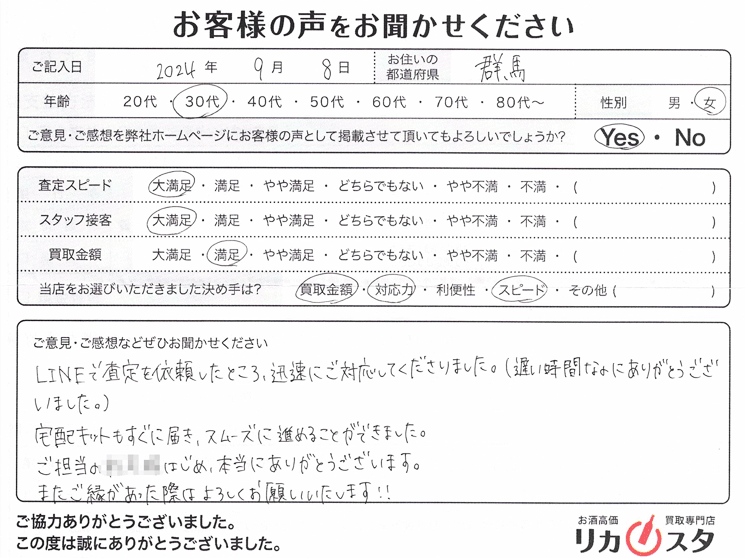 お客様の声をお聞かせください
ご記入日 2024 年 9 月 8 日 お住いの都道府県 群馬
年齢 20代 ・ 30代 ・ 40代 ・ 50代 ・ 60代 ・ 70代 ・ 80代〜 性別 男 ・ 女
ご意見・ご感想を弊社ホームページにお客様の声として掲載させて頂いてもよろしいでしょうか? Yes ・ No
査定スピード 大満足 ・ 満足 ・ やや満足 ・ どちらでもない ・ やや不満 ・ 不満 ・ ( )
スタッフ接客 大満足 ・ 満足 ・ やや満足 ・ どちらでもない ・ やや不満 ・ 不満 ・ ( )
買取金額 大満足 ・ 満足 ・ やや満足 ・ どちらでもない ・ やや不満 ・ 不満 ・ ( )
当店をお選びいただきました決め手は? 買取金額 ・ 対応力 ・ 利便性 ・ スピード ・ その他 ( )
ご意見・ご感想などぜひお聞かせください
LINEで査定を依頼したところ、迅速にご対応してくださりました。(遅い時間なのにありがとうござ
いました。)
宅配キットもすぐに届き、スムーズに進めることができました。
ご担当の はじめ、本当にありがとうございます。
またご縁があった際はよろしくお願いいたします!!
ご協力ありがとうございました。
この度は誠にありがとうございました。
お酒高価 買取専門店
リカスタ